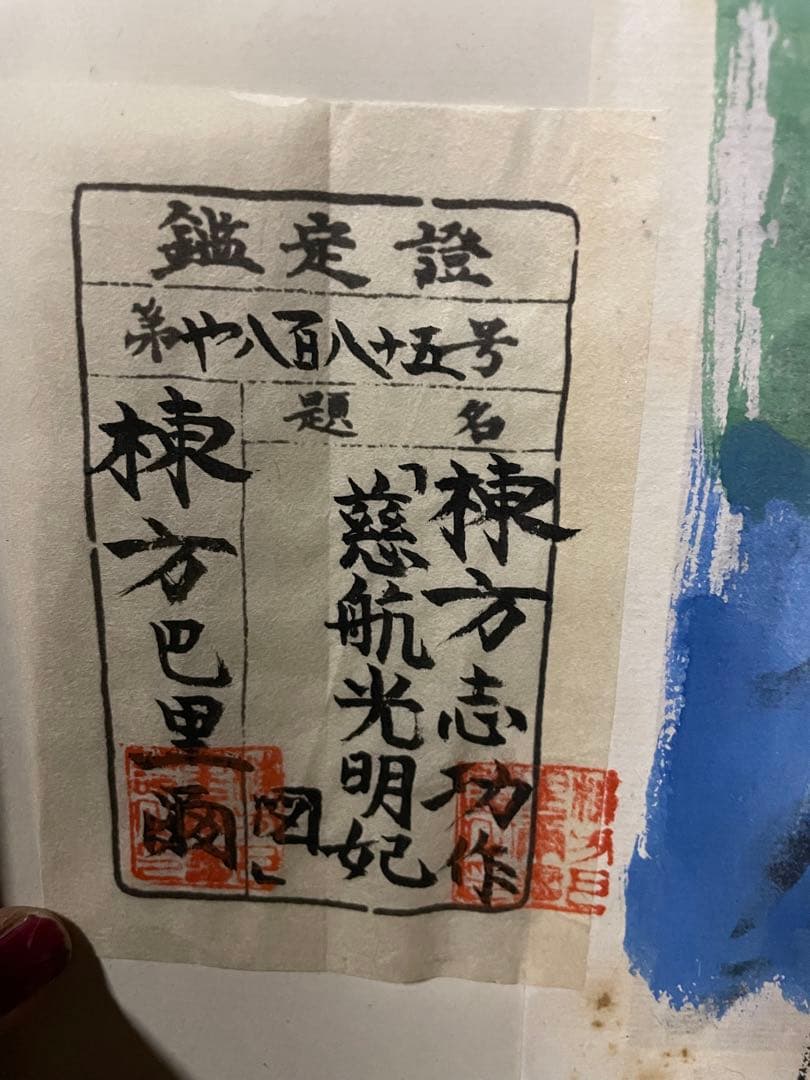 鑑定證
第や八百八十五号
題名
棟方志功作
「慈航光明妃
図」
棟方巴里爾